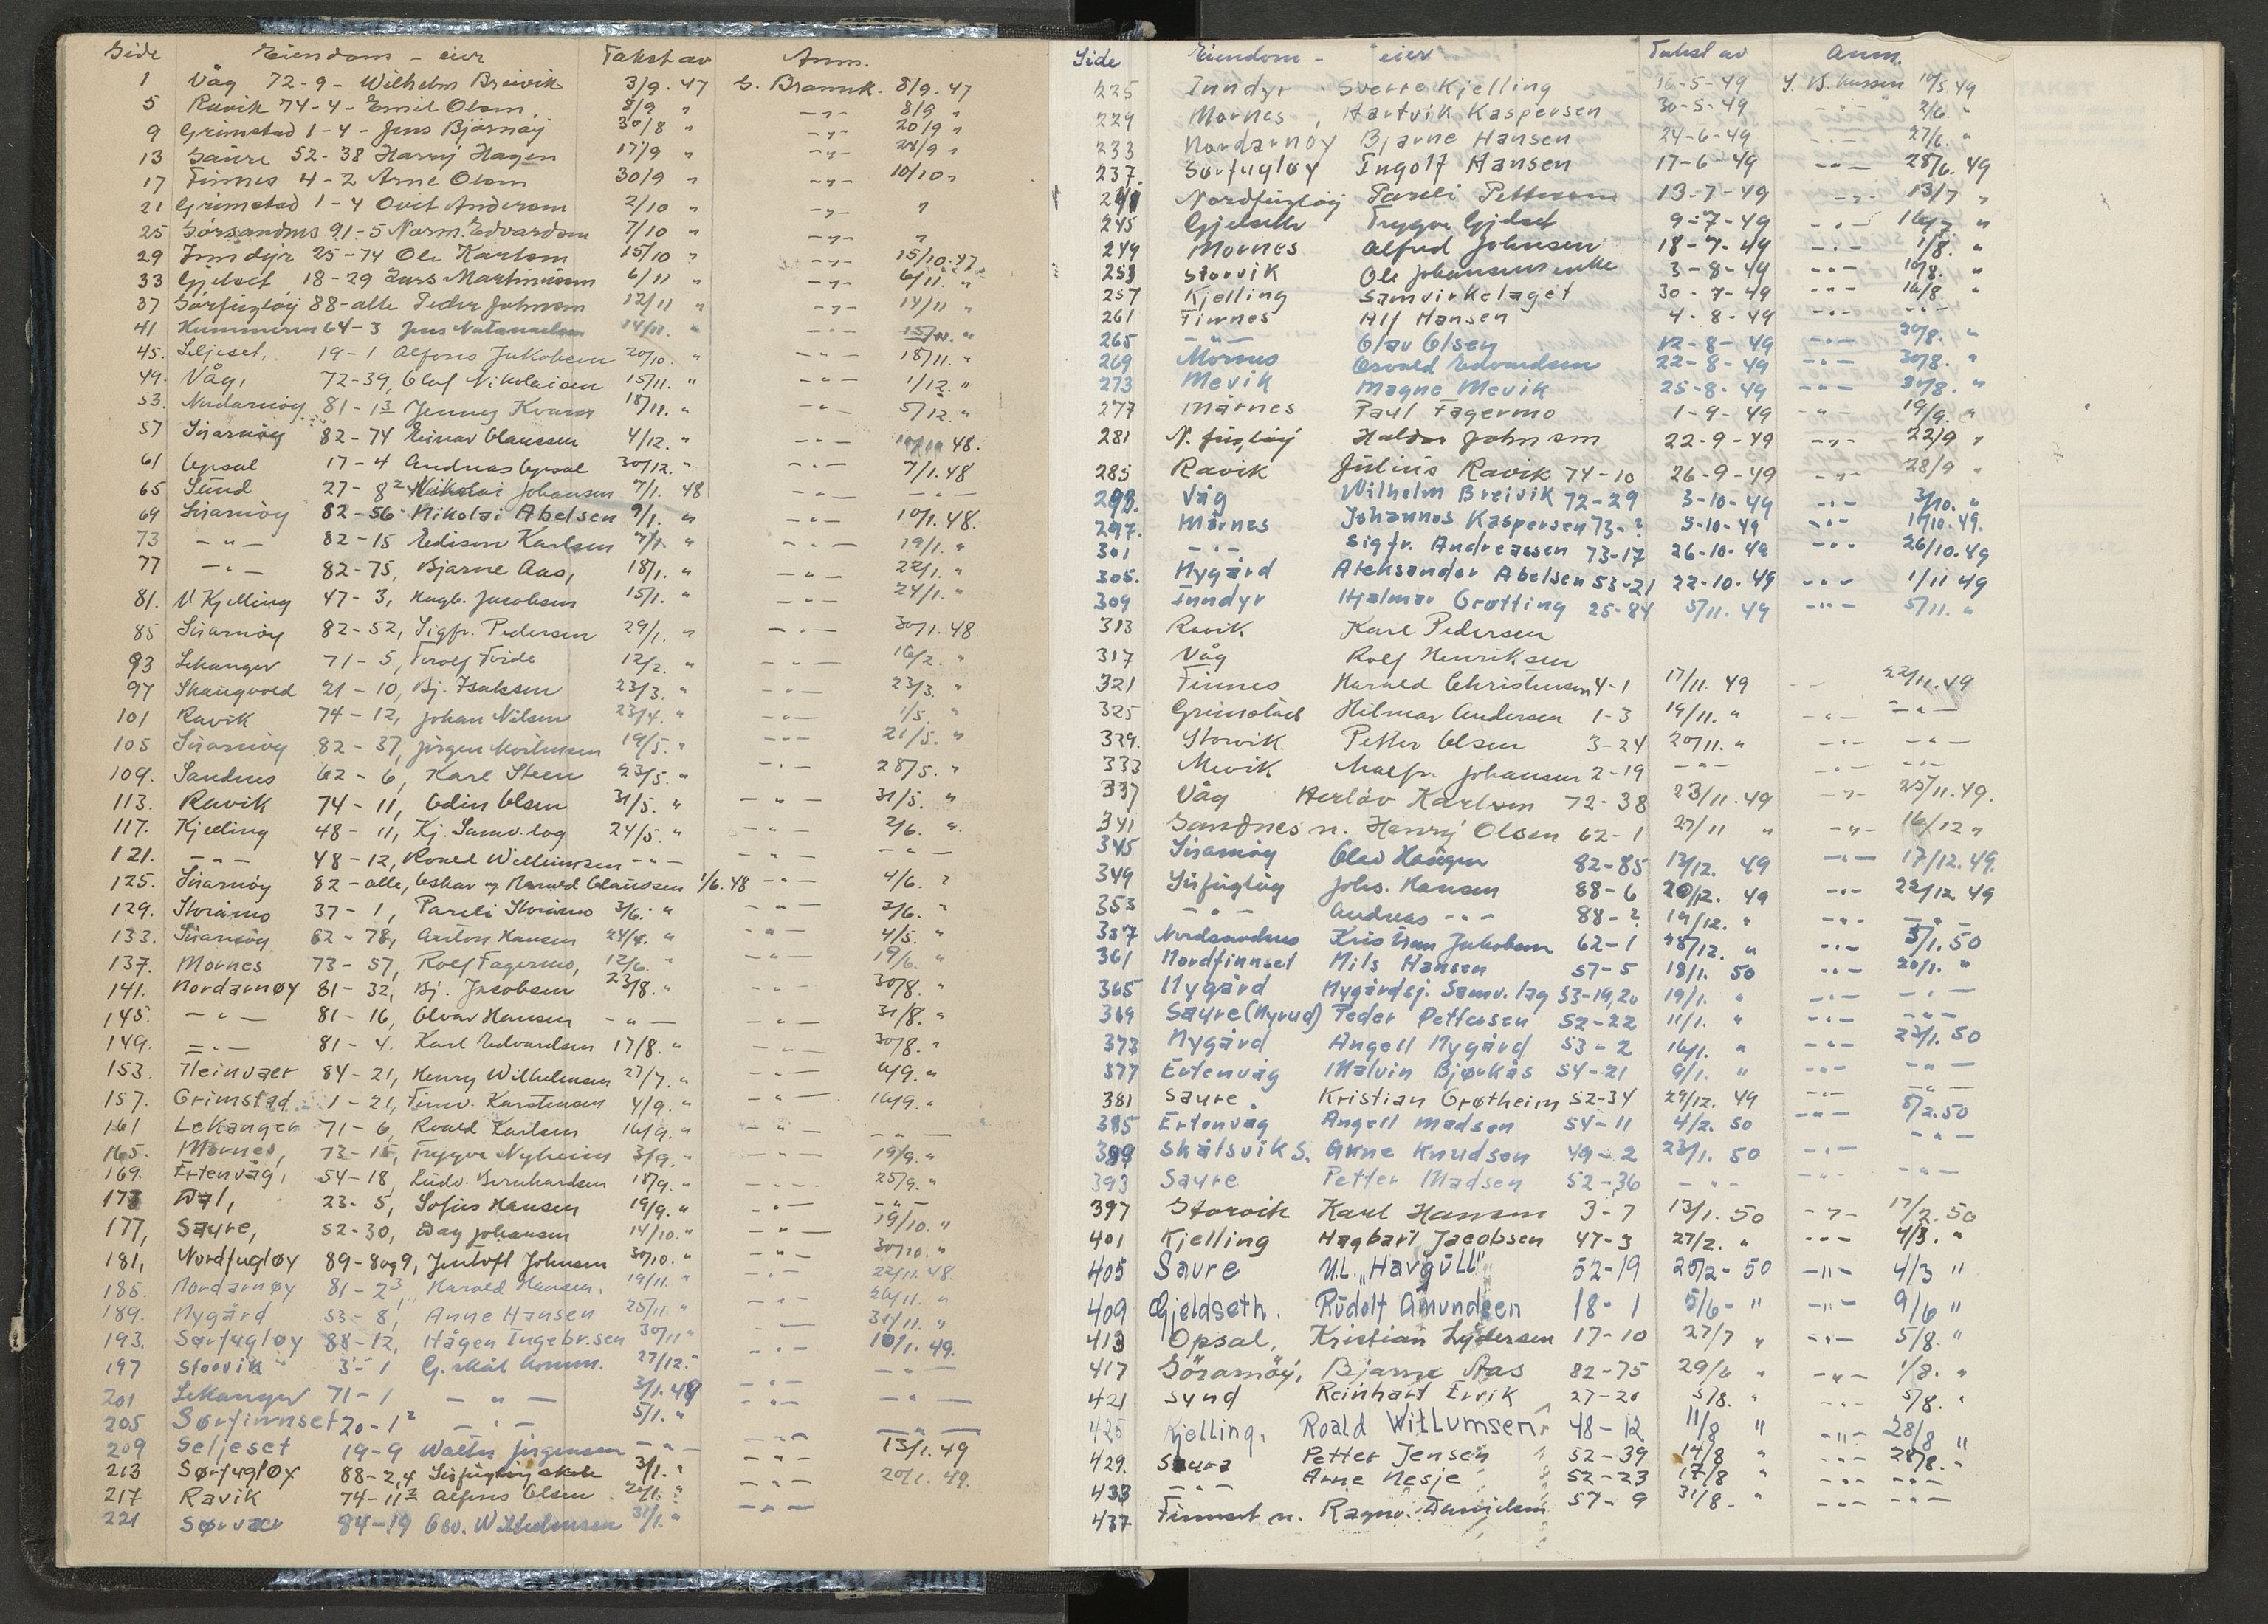 Side Eiendom - eier Takst av Anm.
1 Våg 72-9 - Wilhelm Breivik 3/9. 47 G. Bramsk. 8/9. 47
5 Ravik 74-4 - Emil Olsen. 8/9 " -"- 8/9 "
9 Grimstad 1-4 - Jens Bjørnøy 30/8 " -"- 20/9 "
13 Saure 52-38 Harry Hagen 17/9 " -"- 24/9 "
17 Finnes 4-2 Arne Olsen 30/9 " -"- 10/10 "
21 Grimstad 1-4 Andersen 2/10 " -"- "
25 Sørsandnes 91-5 Norm. Edvardsen 7/10 " -"- "
29 Inndyr 25-74 Ole Karlsen 15/10 " -"- 15/10. 47.
33 Gjelset 18-29 Lars Martinussen 6/11 " -"- 6/11. "
37 Sørfugløy 88-alle Peder Johnsen 12/11 " -"- 14/11 "
41 64-3 Jens 14/11. " -"- 15/11. "
45. Seljeset, 19-1 Alfons Jakobsen 20/10. " -"- 18/11. "
49. Våg, 72-39, Olaf Nikolaisen 15/11. " -"- 1/12. "
53. Nordarnøy 81-13 Jenny Kvam 18/11. " -"- 5/12. "
57 Sørarnøy 82-74 Einar Claussen 4/12. " 48.
61 Opsal 17-4 Andreas Opsal 30/12. " -"- 7/1. 48
65 Sund 27-8² Nikolai Johansen 7/1. 48 -"- -"-
69 Sørarnøy 82-56 Nikolai Abelsen 9/1. " -"- 10/1. 48.
73 -"- 82-15 Edison Karlsen 7/1. " -"- 19/1. "
77 -"- 82-75, Bjarne Aas, 18/1. " -"- 22/1. "
81. N Kjelling 47-3, Hagb. Jacobsen 15/1. " 24/1. "
85 Sørarnøy 82-52, Sigfr. Pedersen 29/1. " -"- 30/1. 48.
93 Lekanger 71-5, Torolf Torde 12/2. " -"- 16/2. "
97 Skaugvold 21-10, Bj. Isaksen 23/3. " -"- 23/3. "
101 Ravik 74-12, Johan Nilsen 23/4. " -"- 1/5. "
105 Sørarnøy 82-37, Jørgen Mortensen 19/5. " -"- 21/5. "
109. Sandnes 62-6, Karl Steen 23/5. " -"- 28/5. "
113. Ravik 74-11, Edin Olsen 31/5. " -"- 31/5. "
117. Kjelling 48-11, Kj. Samv.lag 24/5. " -"- 2/6. "
121. -"- 48-12, Roald Willumsen -"- -"- -"-
125. Sørarnøy 82-alle, Oskar og Harald Claussen 1/6. 48 -"- 4/6. "
129. Storåmo 37-1, Pareli Storåmo 3/6. " -"- 3/6. "
133. Sørarnøy 82-78, Anton Hansen 24/4. " -"- 4/5. "
137. Mornes 73-57, Rolf Fagermo, 12/6. " -"- 19/6. "
141. Nordarnøy 81-32, Bj. Jacobsen 23/8. " -"- 30/8. "
145. -"- 81-16, Olvar Hansen -"- -"- 31/8. "
149. -"- 81-4. Karl Edvardsen 17/8. " -"- 30/8. "
153. Fleinvær 84-21, Henry Wilhelmsen 27/7. " -"- 4/9. "
157. Grimstad 1-21, Finv. Karstensen 4/9. " -"- 16/9. "
161 Lekanger 71-6, Roald Karlsen 16/9. " -"- -"-
165. Mornes, 73-15, Trygve Nyheim 3/9. " -"- 19/9. "
169. Ertenvåg, 54-18, Ludv. Bernhardsen 18/9. " -"- 25/9. "
173 Dal, 23-5, Sofus Hansen 19/9. " -"- -"-
177, Saure, 52-30, Dag Johansen 14/10. " -"- 19/10. "
181, Nordfugløy 89-8og9, Jentoft Johnsen 30/10. " -"- 30/10. "
185. Nordarnøy 81-2³, Harald Hansen. 19/11. " -"- 22/11. 48.
189. Nygård 53-8, Anne Hansen 25/11. " -"- 26/11. "
193. Sørfugløy 88-12, Hågen Ingebr.sen 30/11 " -"- 31/11. "
197 Storvik 3-1 G.skål komm. 27/12. " -"- 10/1. 49.
201 Lekanger 71-1 -"- 3/1. 49 -"- -"-
205 Sørfinnset 20-1² -"- 5/1. " -"- -"-
209 Seljeset 19-9 Walter Jørgensen -"- -"- -"-
213 Sørfugløy 88-2,4 Sørfugløy skole 3/1. " -"- 13/1. 49
217 Ravik 74-11² Alfons Olsen 20/1. " -"- 20/1. 49.
221 Sørvær 84-19 Osv. Wilhelmsen 31/1. " -"-
Side Eiendom - eier Takst av Anm.
225 Inndyr Sverre Kjelling 16-5-49 19/5. 49
229 Mornes, Hartvik Kaspersen 30-5-49 -"- 2/6. "
233 Nordarnøy Bjarne Hansen 24-6-49 -"- 27/6. "
237. Sørfugløy Ingolf Hansen 17-6-49 -"- 28/6. 49
241 Nordfugløy Pareli Pettersen 13-7-49 -"- 13/7 "
245 Gjelseth Trygve Gjelset 9-7-49 -"- 16/7 "
249 Mornes Alfred Johnsen 18-7-49 -"- 1/8. "
253 Storvik Ole Johansens enke 3-8-49 -"- 10/8. "
257 Kjelling Samvirkelaget 30-7-49 -"- 16/8 "
261 Finnes Alf Hansen 4-8-49 -"- -"-
265 -"- Olav Olsen 12-8-49 -"- 20/8. "
269 Mornes Osvald Edvardsen 22-8-49 -"- 30/8. "
273 Mevik Magne Mevik 25-8-49 -"- 30/8. "
277 Mårnes Paul Fagermo 1-9-49 -"- 19/9. "
281 N. fugløy Haldor Johnsen 22-9-49 -"- 22/9 "
285 Ravik Julius Ravik 74-10 26-9-49 -"- 28/9 "
293. Våg Wilhelm Breivik 72-29 3-10-49 -"- 3/10. "
297. Mårnes Johannes Kaspersen 73-? 5-10-49 -"- 11/10. 49.
301 -"- Sigfr. Andreassen 73-17 26-10-49 -"- 26/10. 49
305. Nygård Aleksander Abelsen 53-21 22-10. 49 -"- 1/11 49
309 Inndyr Hjalmar Grøtting 25-84 5/11. 49 -"- 5/11. "
313 Ravik Karl Pedersen
317 Våg Rolf Henriksen
321 Finnes Harald Christensen 4-1 17/11. 49 22/11. 49
325 Grimstad Hilmar Andersen 1-3 19/11. " -"- -"-
329. Storvik Petter Olsen 3-24 20/11. " -"- -"-
333 Mevik Malfr. Johansen 2-19 -"- -"- -"-
337 Våg Herlov Karlsen 72-38 23/11. 49 -"- 25/11. 49.
341 Sandnes n. Henry Olsen 62-1 27/11 " -"- 16/12 "
345 Sørarnøy Olav Haugen 82-85 13/12. 49 -"- 17/12. 49.
349 Sørfugløy Johs. Hansen 88-6 20/12. 49 -"- 22/12 49
353 -"- Andreas -"- 88-? 19/12. " -"- -"-
357 Nordsandnes Kristian Jakobsen 62-1 28/12. " -"- 5/1. 50
361 Nordfinnset Nils Hansen 57-5 18/1. 50 -"- 20/1. "
365 Nygård Nygårdsj. Samv.lag 53-19,20 19/1. " -"- -"-
369 Saure (Nyrud) Peder Pettersen 52-22 11/1. " -"- -"-
373 Nygård Angell Nygård 53-2 16/1. " -"- 23/1. 50
377 Ertenvåg Malvin Bjørkås 54-21 9/1. " -"- -"-
381 Saure. Kristian Grøtheim 52-34 29/12. 49 -"- -"-
385 Ertenvåg Angell Madsen 54-11 4/2. 50 -"- 8/2. 50
389 Skålsvik S. Arne Knudsen 49-2 23/1. 50 -"- -"-
393 Saure Petter Madsen 52-36 -"- -"- -"-
397 Storvik Karl Hansen 3-7 13/1. 50 -"- 17/2. 50
401 Kjelling Hagbart Jacobsen 47-3 27/2. " -"- 4/3. "
405 Saure U.L. "Havgull" 52-19 25/2- 50 -"- 4/3 "
409 Gjeldseth. Rudolf Amundsen 18-1 5/6- " -"- 9/6 "
413 Opsal, Kristian Lydersen 17-10 27/7 " -"- 5/8. "
417 Sörarnöy, Bjarne Aas 82-75 29/6 " -"- 1/8. "
421 Sund Reinhart Ervik 27-20 5/8. " -"- 5/8. "
425 Kjelling. Roald Willumsen 48-12 11/8 " -"- 28/8 "
429. Saura Petter Jensen 52-39 14/8 " -"- 28/8. "
433 -"- Arne Nesje 52-23 17/8 " -"- -"-
437 Finnset n. Ragnv. Danielsen 57-9 31/8. " -"- -"-